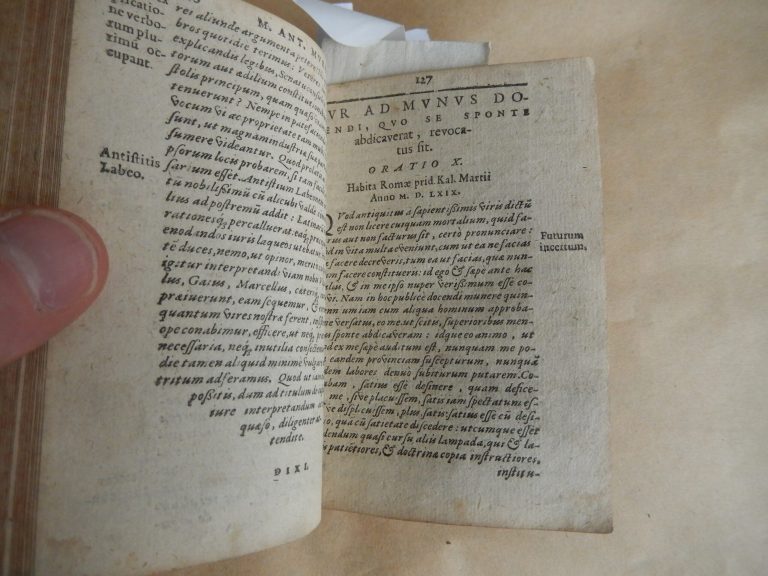 M. ANT. MV
plicatio-
ne verbo-
rum plu-
rimū oc-
cupant.
res aliunde argumenta petere
bros quotidie terimus: Verbis
explicandis legibus, Senatusconsul
torum aut ædilium constitut
stolis principum, quam quasi
tenuerunt? Nempe in patefac
vocum vi ac proprietate tam mul
sunt, ut magnam industria sua par
sumere videantur. Quod proba
psorum locis probarem, si tam
sarium esset. Antistium Labeonem
Antistitis
Labeo.
tū nobilissimū cū alicubi valde
lius ad postremū addit: Latina
rationesq́, percalluerat, eaq́, præci
enodandos iuris laqueos utebatur
tè duces, nemo, ut opinor, merito
igitur interpretandi viam nobis
lus, Gaius, Marcellus, ceteriq́
præiuerunt, eam sequemur, &
quantum vires nostræ ferent, in
ope conabimur, efficere, ut neq́
necessaria, neq́ inutilia consect
die tamen aliquid minime vulga
tritum adferamus. Quod ut
possitis, dum ad titulum de
turæ interpretandum
quæso, diligenter at
tendite.
DIXI.
127
VR AD MVNVS DO-
ENDI, QVO SE SPONTE
abdicaverat, revoca-
tus sit.
ORATIO X.
Habita Romæ prid. Kal. Martii
Anno M. D. LXIX.
QVod antiquitus à sapientissimis viris dictū
est non licere cuiquam mortalium, quid fa-
rus aut non facturus sit, certò pronunciare:
in vita multa eveniunt, cum ut ea ne facias
facere decreveris, tum ea ut facias, quæ nun-
m facere constitueris: id ego & sæpe ante hac
, & in me ipso nuper verissimum esse co-
vi. Nam in hoc publicè docendi munere quin-
nn um iam cum aliqua hominum approba-
ne versatus, eo me, ut scitis, superioribus men-
sponte abdicaveram: idque eo animo, ut
ad ex me sæpe auditum est, nunquam me po-
eandem provinciam suscepturum, nunquā
dem labores denuo subiturum putarem. Co-
bam, satius esse desinere, quam defice-
me, sive placuissem, satis iam spectatum es-
ve displicuissem, plus satis: satius esse cū desi-
, quā cū satietate discedere: utcumque esset
dendum quasi cursu aliis lampada, qui & la-
patiētiores, & doctrinæ copia instructiores,
institu-
Futurum
incertum.